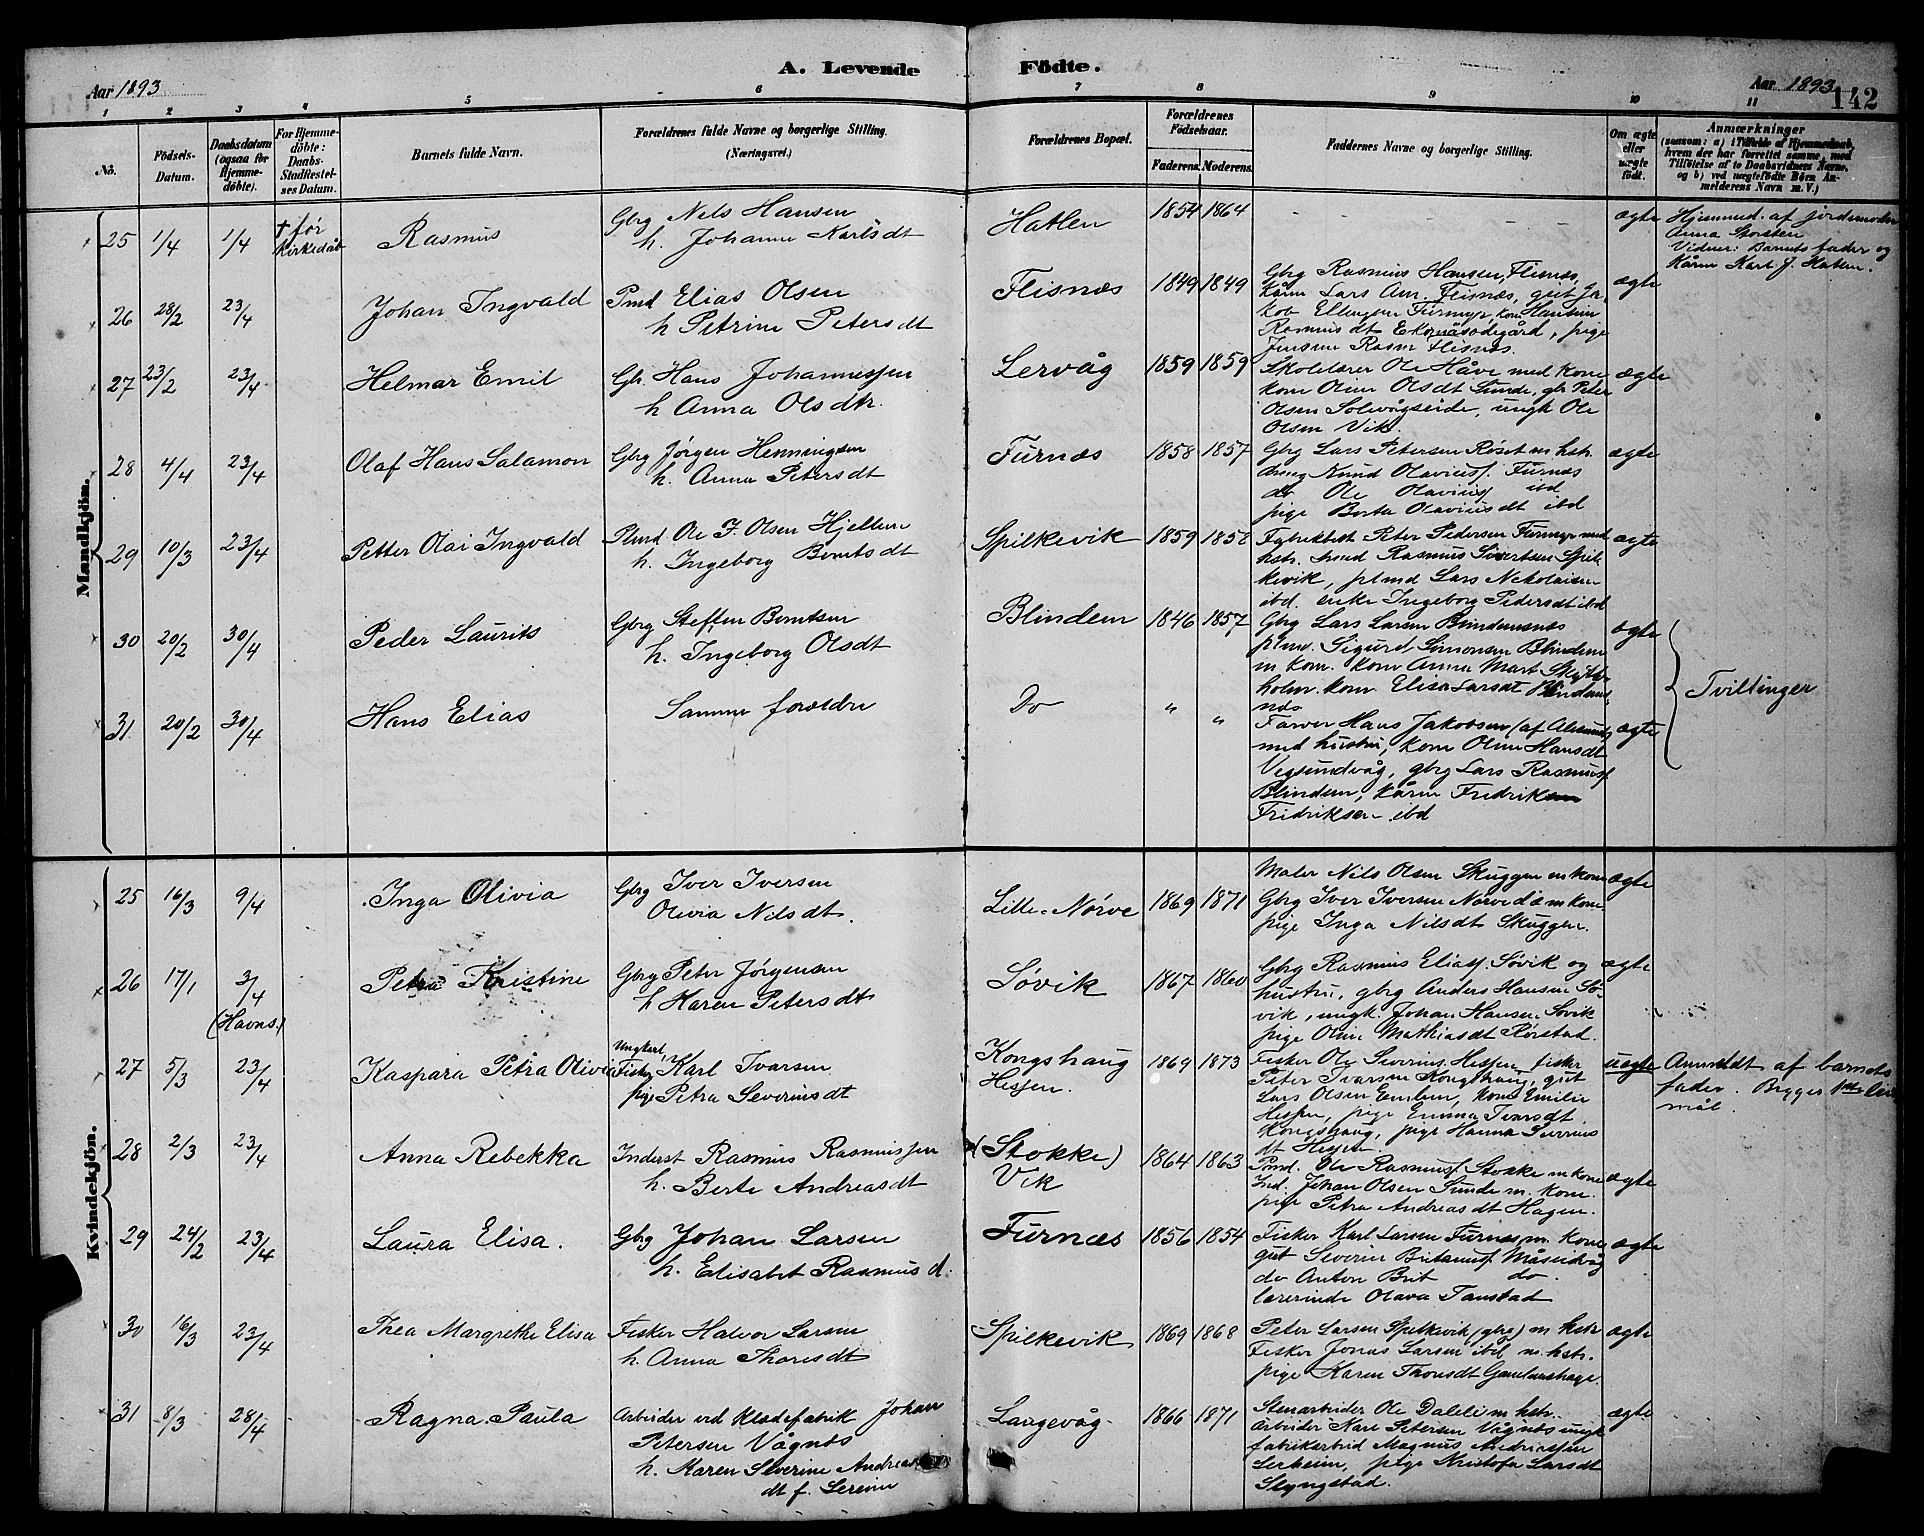 A. Levende Födte.
Aar 1893
Aar 1893
142
1 2 3 4 5 6 7 8 9 10 11
No.
Födsels-Datum.
Daabsdatum (ogsaa for Hjemmedöbte).
For Hjemmedöbte: Daabs-Stadfæstelses Datum.
Barnets fulde Navn.
Forældrenes fulde Navne og borgerlige Stilling. (Næringsvei.)
Forældrenes Bopæl.
Forældrenes Födselsaar.
Faderens. Moderens.
Faddernes Navne og borgerlige Stilling.
Om ægte eller uægte födt.
Anmærkninger (saasom: a) i Tilfælde af Hjemmedaab, hvem der har forrettet samme, med Tilföielse af to Daabsvidners Navne, og b) ved uægtefödte Börn Anmelderens Navn m. V.)
Mandkjön.
25 1/4 1/4 † før kirkedåb Rasmus
Gbrg Nils Hansen
h. Johanne Karlsdt
Hatlen 1854 1864 - - - ægte
Hjemmed. af jordemoder
Anna Storsten
Vidner: Barnets fader og
Kårm Karl J. Hatlen.
26 28/2 23/4 Johan Ingvald
Pmd Elias Olsen
h Petrine Petersdt
Flisnæs 1849 1849
Gbrg Rasmus Hansen, Flisnæs,
Kårm Lars Am. Flisnæs, gut Ja
kob Ellingsen Furmyr, kone Hansine
Rasmusdt Ekornåsødegård, pige
Jensine Rasm Flisnæs.
ægte
27 23/2 23/4 Helmar Emil
Gbr. Hans Johannessen
h Anna Olsdtr.
Lervåg 1859 1859
Skolelærer Ole Håve med kone
kone Oline Olsdt Sunde, gbr Peter
Olsen Solevågseide, ungk Ole
Olsen Vik.
ægte
28 4/4 23/4 Olaf Hans Salamon
Gbrg Jørgen Henningsen
h. Anna Petersdt
Furnæs 1858 1857
Gbrg Lars Petersen Røset m hstr.
dreng Knud Olavius. Furnæs
do Ole Olavius ibd
pige Berta Olaviusdt ibd
ægte
29 10/3 23/4 Petter Olai Ingvald
Plmd Ole J. Olsen Hjellen
h. Ingeborg Berntsdt
Spilkevik 1859
Peter Pedersen Furmyr med
hstr. Rasmus Sivertsen Spil
kevik, plmd Lars Nikolaisen
ibd. enke Ingeborg Pedersdt ibd
ægte
30 20/2 30/4 Peder Laurits
Gbrg Steffen Berntsen
h. Ingeborg Olsdt
Blindem 1846 1857
Gbrg Lars Larsen Blindemsnæs
plmd. Sigurd Simonsen Blindem
m kone. kone Anna Mart.
holm. kone Elisa Larsdt Blindem
næs
ægte
Tvillinger
31 20/2 30/4 Hans Elias
Samme forældre
Do " "
Farver Hans Jakobsen (af Ålesund)
med hustru, kone Oline Hansdt
Vegsundvåg, gbrg Lars Rasmus.
Blindem, kårm Fredrik
Fridriksen ibd
ægte
Kvindekjön.
25 16/3 9/4 Inga Olivia
Gbrg Iver Iversen
Olivia Nilsdt.
Lille-Nørve 1869 1871
Maler Nils Olsen Skuggen m kone
Gbrg Iver Iversen Nørve d.æ m kone.
pige Inga Nilsdt Skuggen.
ægte
26 17/1 3/4 (Havns.) Petra Kristine
Gbrg Peter Jørgensen
h Karen Petersdt
Søvik 1867 1860
Gbrg Rasmus Elias. Søvik og
hustru, gbrg Anders Hansen Sø-
vik, ungk. Johan Hansen Søvik
pige Oline Mathiasdt Rørstad.
ægte
27 5/3 23/4 Kaspara Petra Olivia
Ungkarl,
Fisker Karl Ivarsen
pige Petra Severinsdt
Kongshaug
Hessen.
1869 1873
Fisker Ole Severins. Hessen, fisker
Peter Ivarsen Kongshaug, gut
Lars Olsen Emlem, kone Emilie
Hessen, pige Emma Ivarsdt
Kongshaug, pige Hanna Severins
dt Hessen
uægte
Anmeldt af barnets
fader. Begges 1ste leier
mål.
28 2/3 23/4 Anna Rebekka
Inderst Rasmus Rasmussen
h. Berte Andreasdt
(Stokke)
Vik
1864 1863
Pmd. Ole Rasmus. Stokke m kone
Ind. Johan Olsen Sunde m. kone.
pige Petra Andreasdt Hagen.
ægte
29 24/2 23/4 Laura Elisa.
Gbrg Johan Larsen
h. Elisabet Rasmusd.
Furnæs 1856 1854
Fisker Karl Larsen Furnæs m. kone
gut Severin Britanus. Måseidvåg
do Anton Brit do.
lærerinde Olava Tanstad
ægte
30 16/3 23/4 Thea Margrethe Elisa
Fisker Halvor Larsen
h. Anna Thoresdt
Spilkevik 1869 1868
Peter Larsen Spilkevik (gbrg) m hstr
Fisker Jonas Larsen ibd m. hstr.
pige Karen Thoresdt Gamlemshage.
ægte
31 8/3 28/4 Ragna Paula
Arbeider ved Klædefabrik Johan
Petersen Vågnæs
h. Karen Severine Andreas
dt f.
Langevåg 1866 1871
Stenarbeider Ole Dalelie m hstr.
arbeider Karl Petersen Vågnæs ungk
fabrikarbeid Magnus Andreassen
Lerheim, pige Kristofa Larsdt
Slyngstad.
ægte